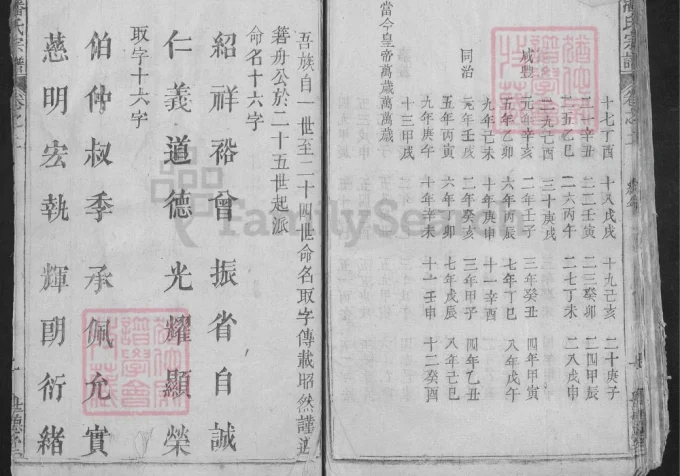 十七丁酉 十八戊戌 十九己亥 二十庚子
二一辛丑 二二壬寅 二三癸卯 二四甲辰
二五乙巳 二六丙午 二七丁未 二八戊申
二九己酉 三十庚戌
咸豐 元年辛亥 二年壬子 三年癸丑 四年甲寅
五年乙卯 六年丙辰 七年丁巳 八年戊午
九年己未 十年庚申 十一辛酉
同治 元年壬戌 二年癸亥 三年甲子 四年乙丑
五年丙寅 六年丁卯 七年戊辰 八年己巳
九年庚午 十年辛未 十一壬申 十二癸酉
十三甲戌
當今皇帝萬歲萬萬歲
吾族自一世至二十四世命名取字傳載昭然謹遵
簪舟公於二十五世起派
命名十六字
紹祥裕曾振省自誠
仁義道德光耀顯榮
取字十六字
伯仲叔季承佩允實
慈明宏執輝朗衍緒
潘氏宗譜
FamilySearch